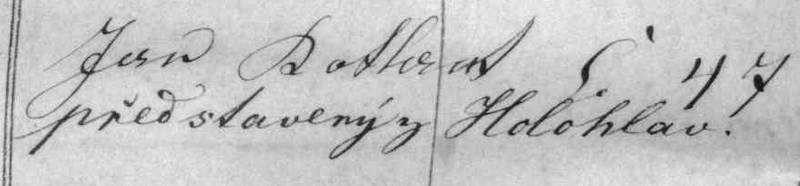 Jan Kotland č 47
představený z Holohlav.